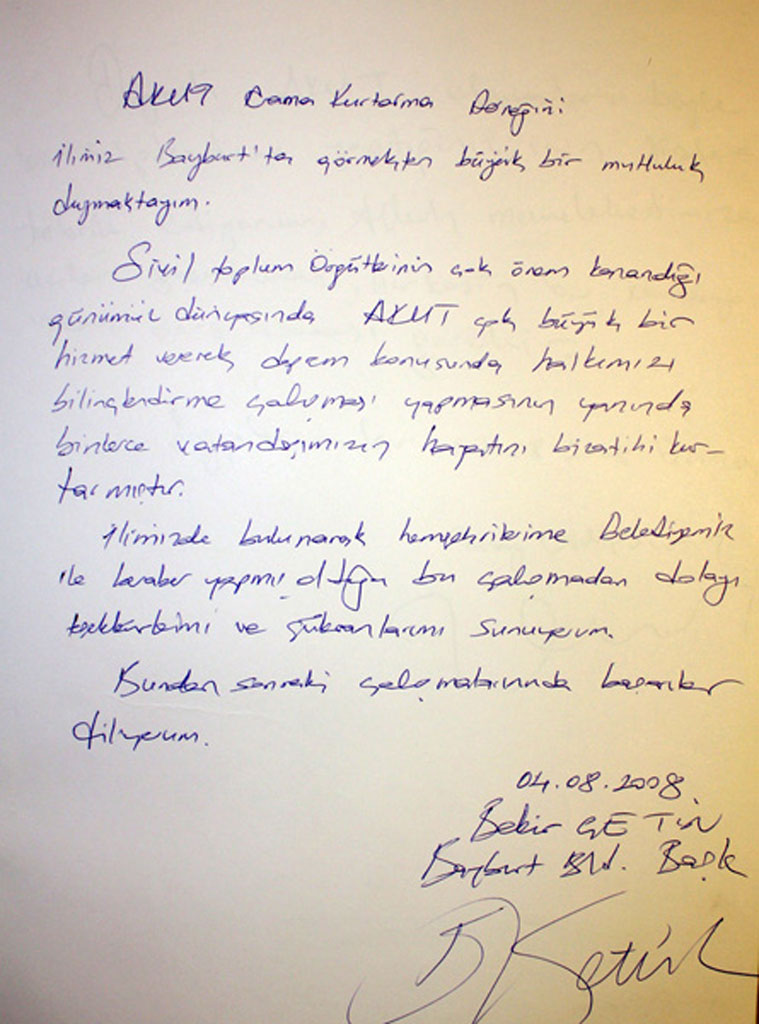 AKUT Arama Kurtarma Derneğini
ilimiz Bayburt'ta görmekten büyük bir mutluluk
duymaktayım.
Sivil toplum Örgütlerinin çok önem kazandığı
günümüz dünyasında AKUT çok büyük bir
hizmet vererek deprem konusunda halkımızı
bilinçlendirme çalışması yapmasının yanında
binlerce vatandaşımızın hayatını bizatihi kur-
tarmıştır.
ilimizde bulunarak hemşehrilerime Belediyemiz
ile beraber yapmış olduğu bu çalışmadan dolayı
teşekkürlerimi ve şükranlarımı sunuyorum.
Bundan sonraki çalışmalarınında başarılar
diliyorum.
04.08.2008
Bekir ÇETİN
Bayburt Bld. Başk
B Çetin